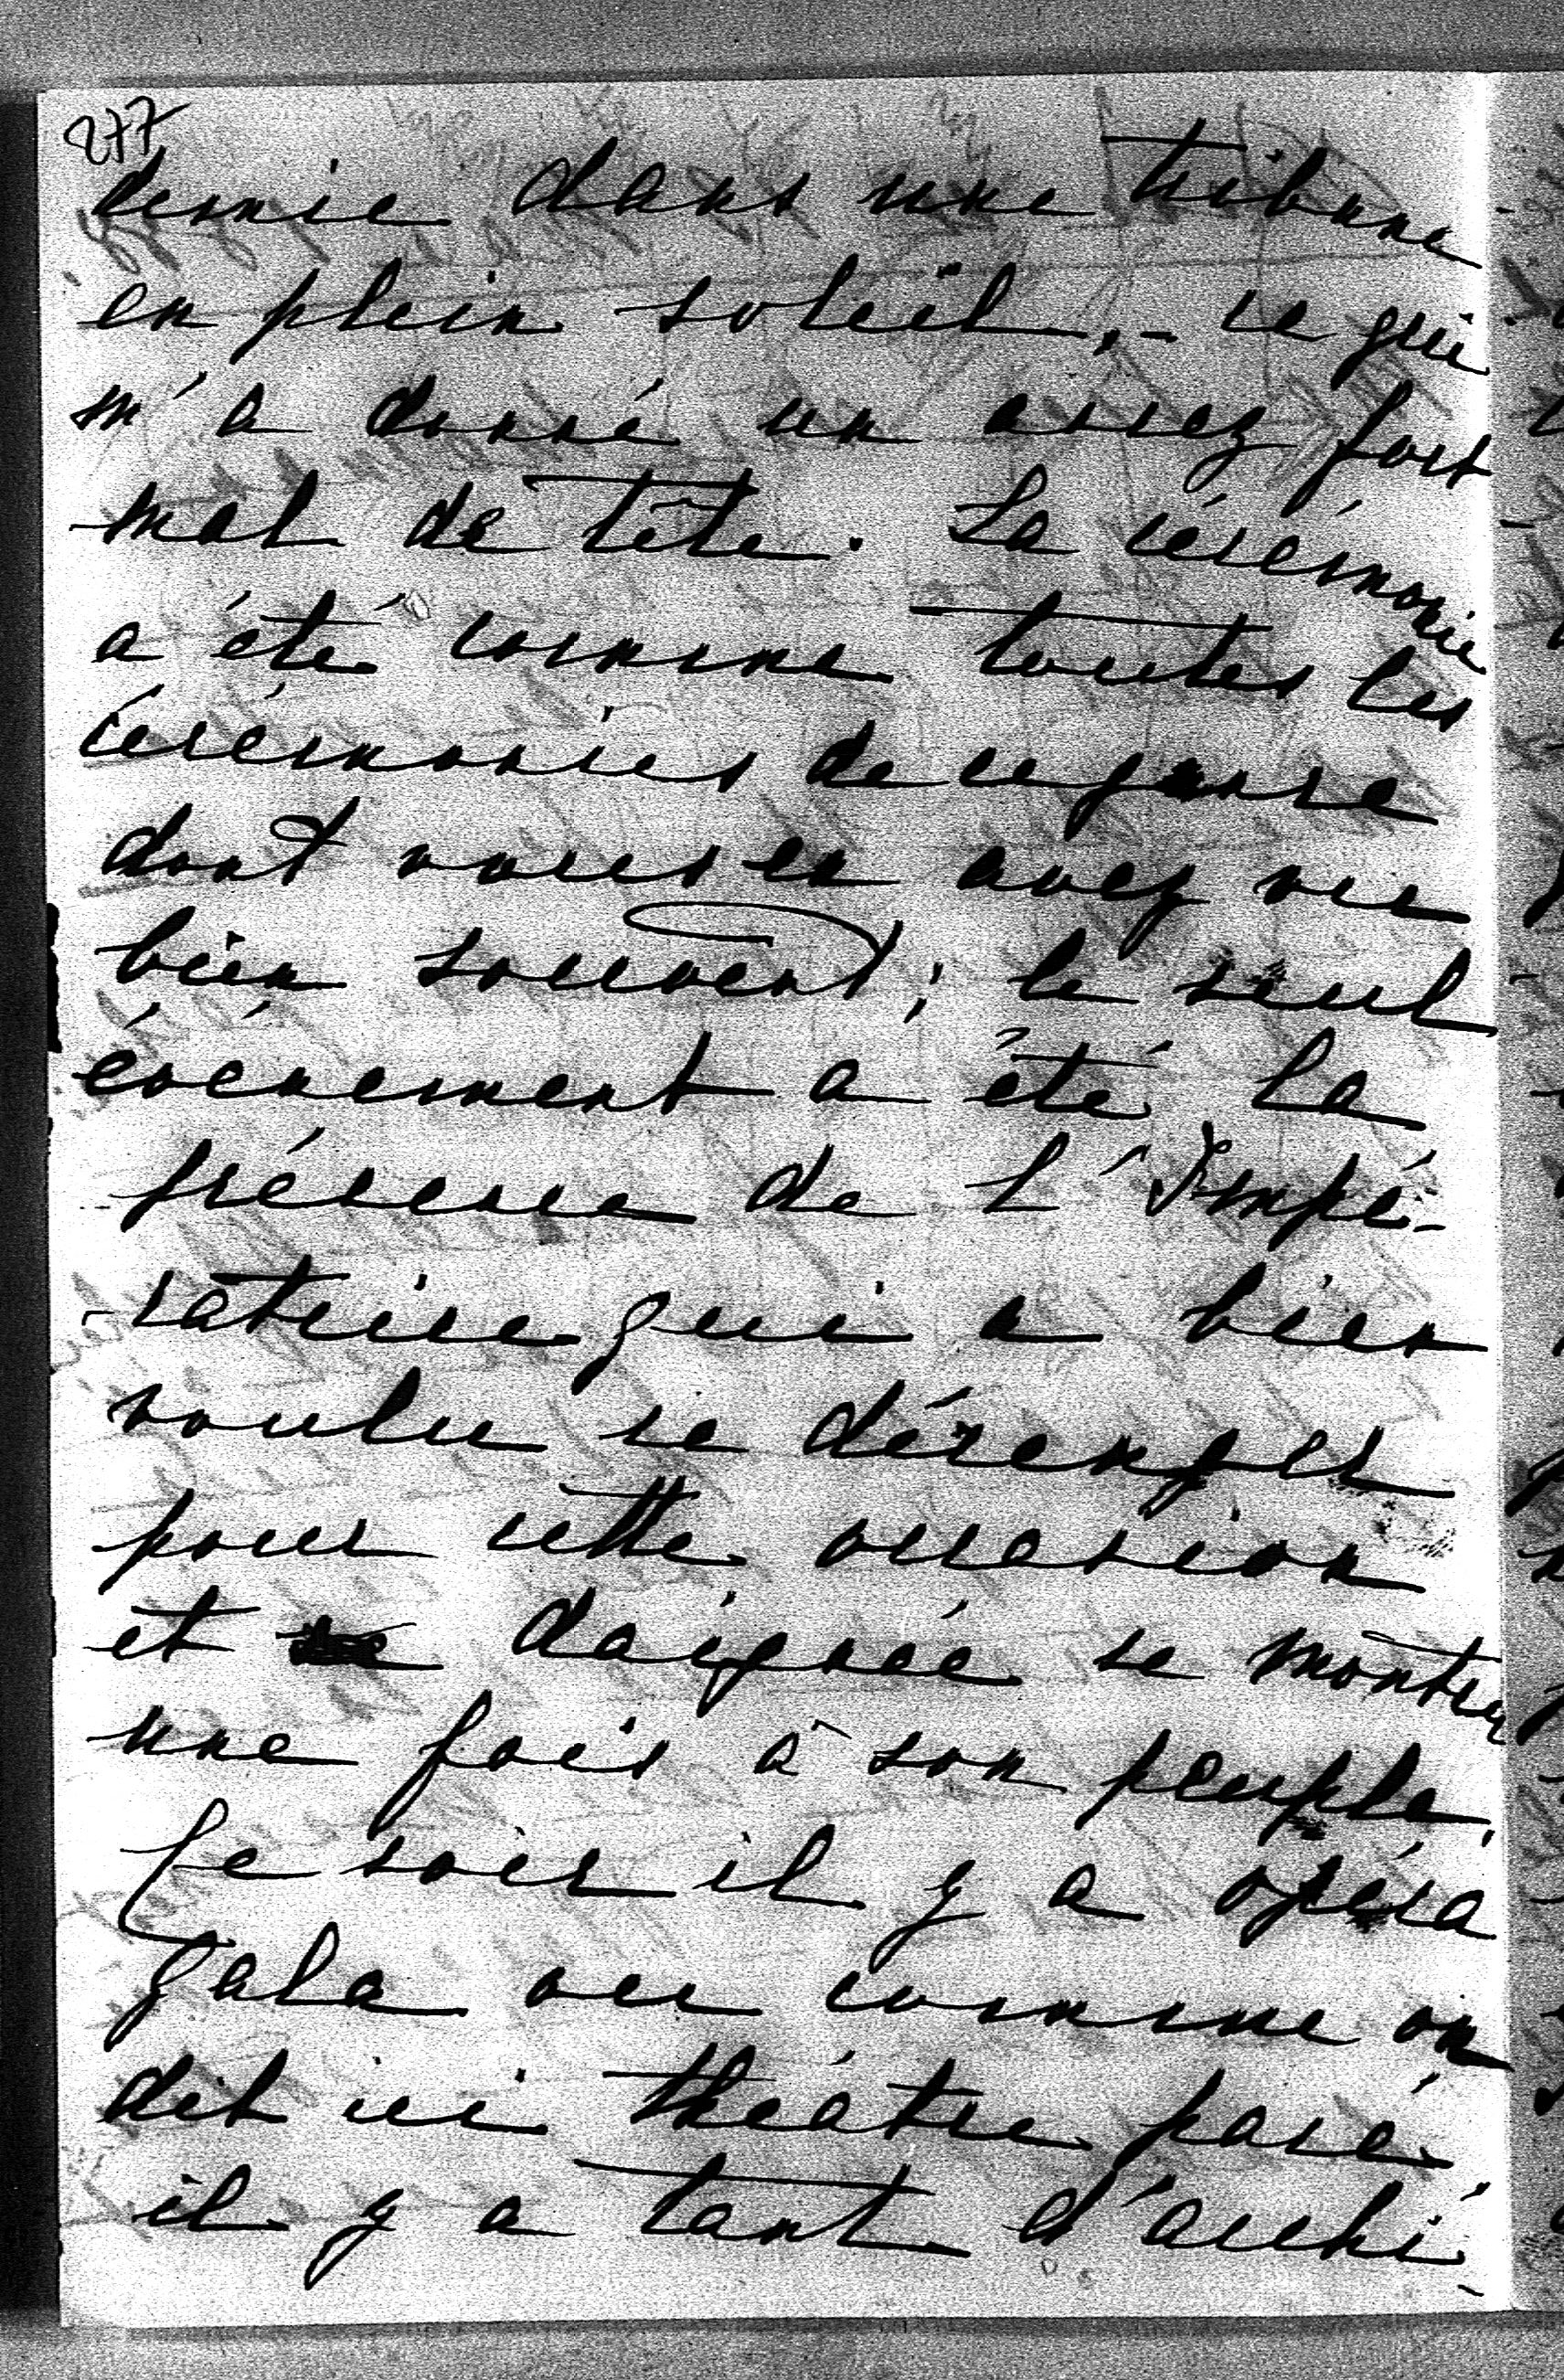 277
demie dans une tribune
en plein soleil, – ce qui
m'a donné un assez fort
mal de tête. La cérémonie
a été comme toutes les
cérémonies de ce genre
dont vous en avez vu
bien souvent; le seul
événement a été la
présence de L'Impé-
-ratrice qui a bien
voulu se déranger
pour cette occasion
et daignée se montrer
une fois à son peuple.
Ce soir il y a opéra
gala ou comme on
dit ici théâtre paré,
il y a tant d'archi-